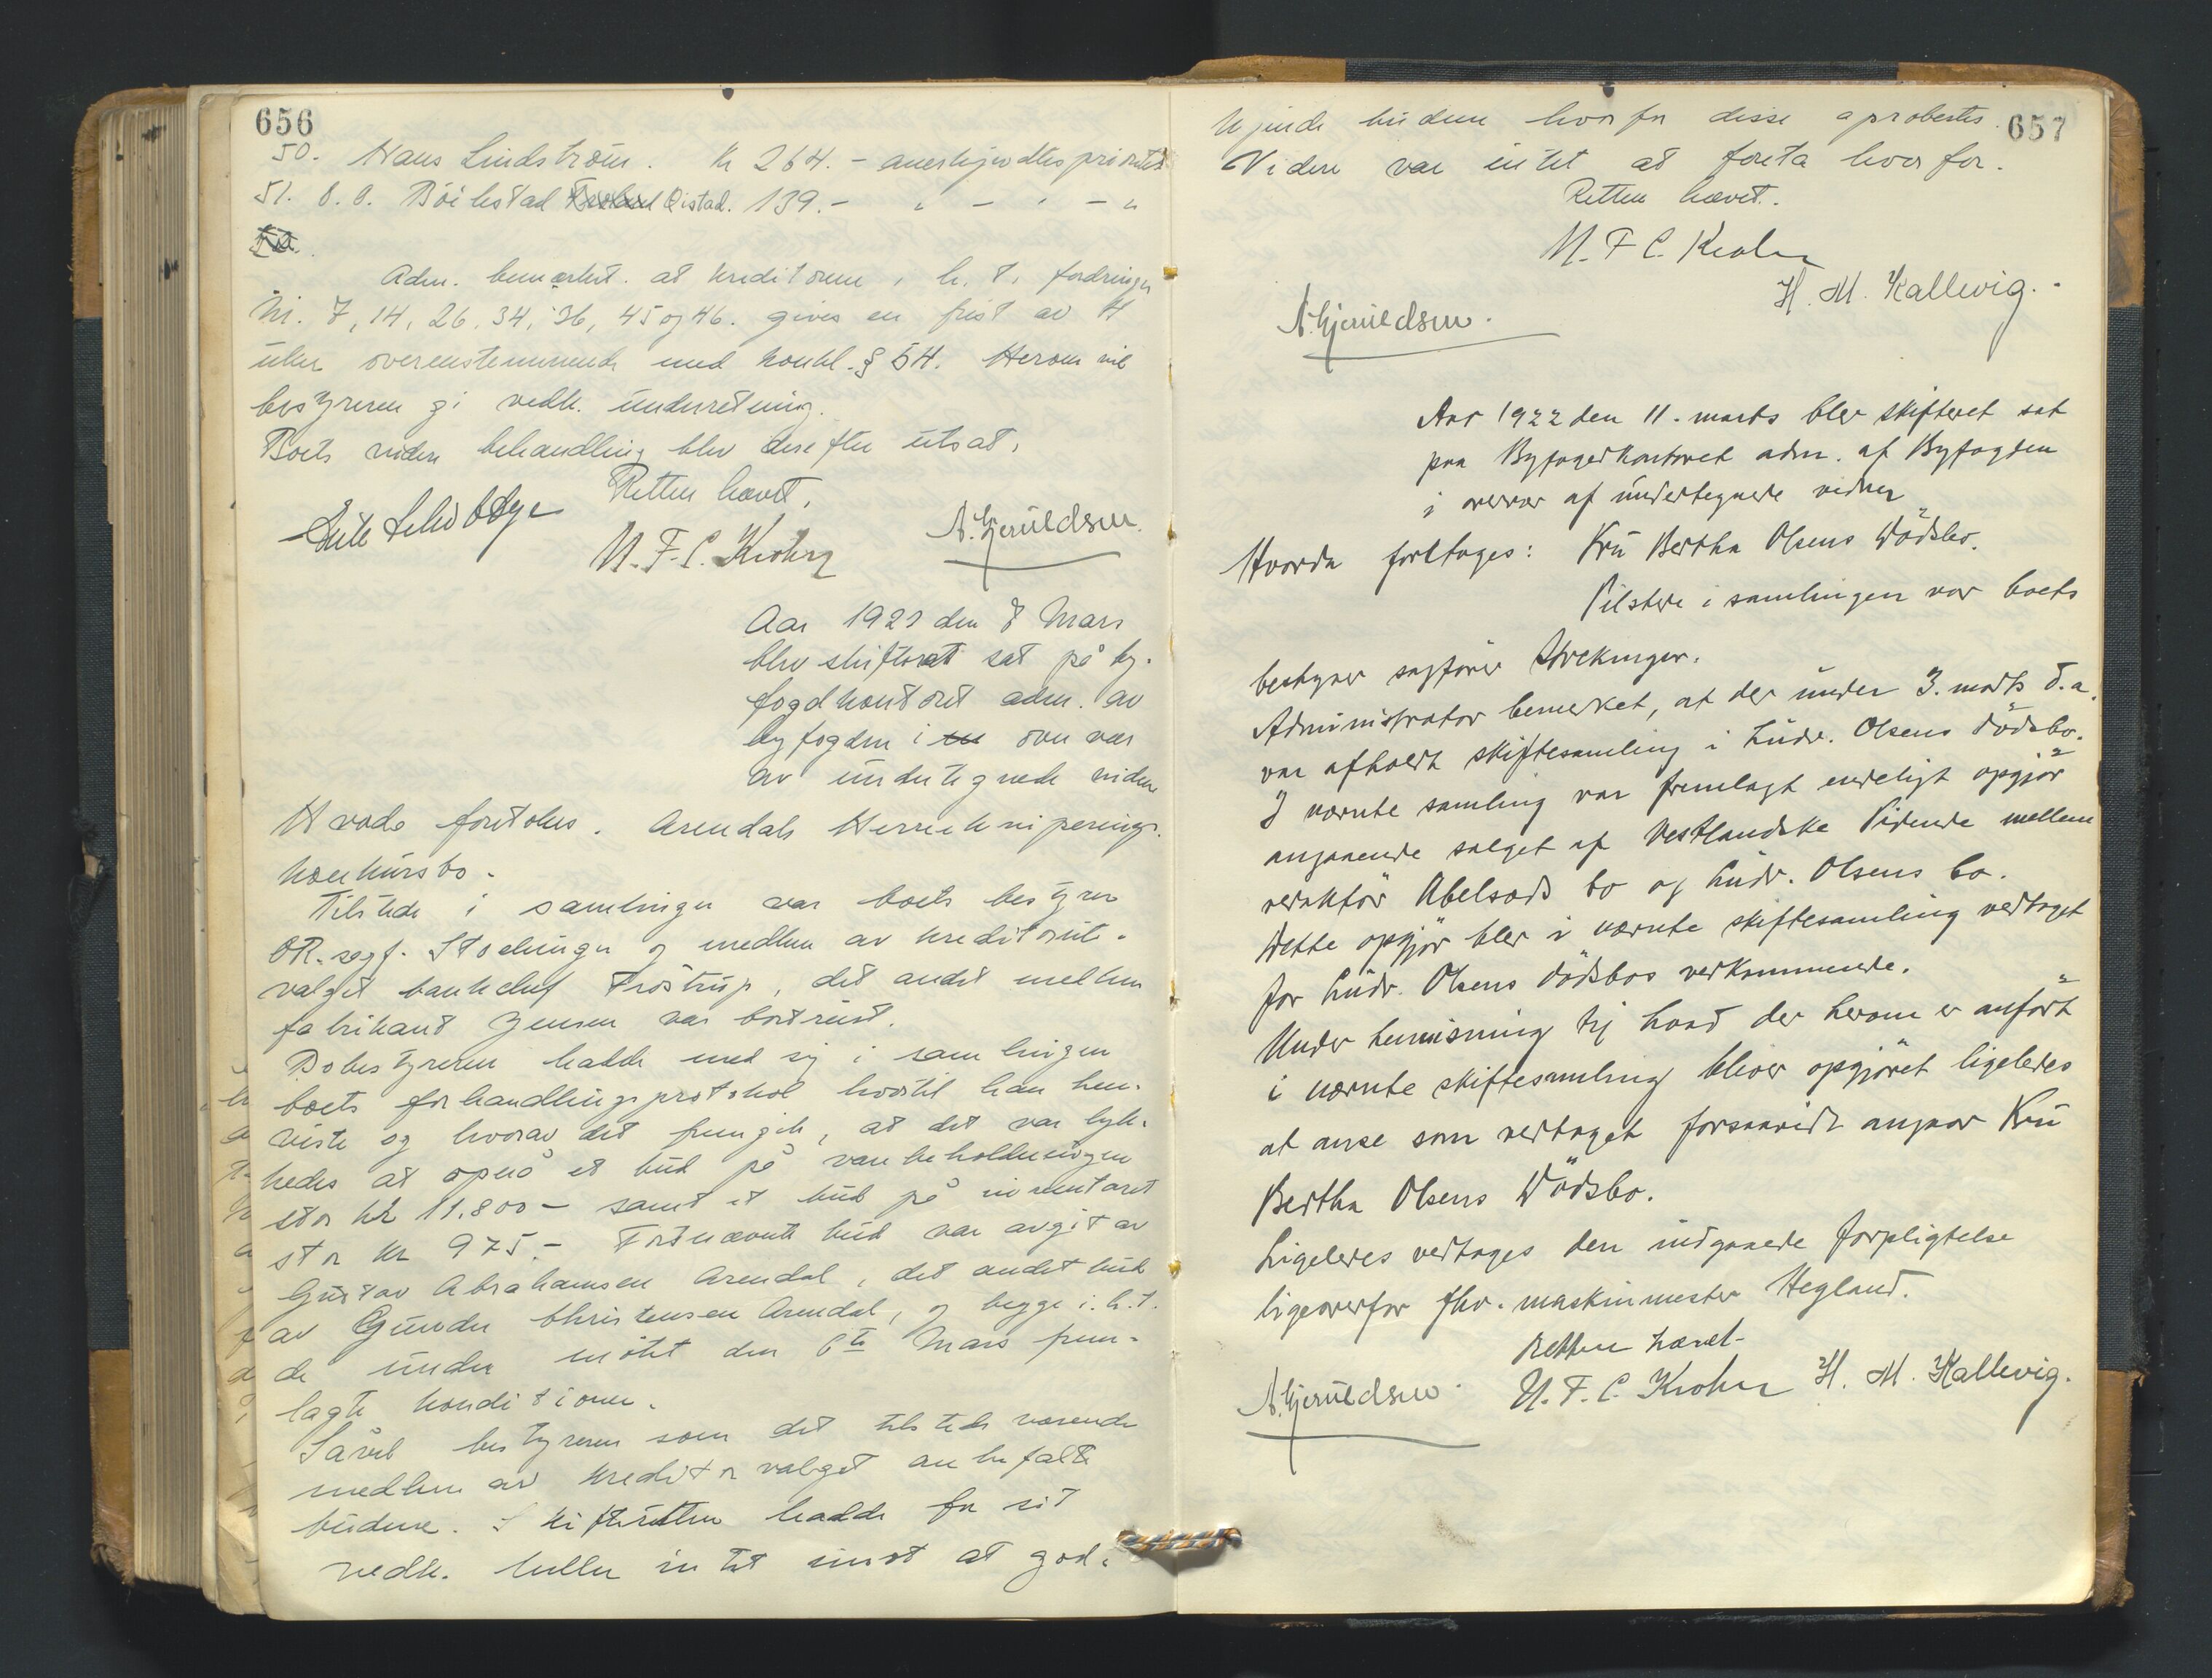 656
50. Hans Lindström. Kr 264.- anerkjendtes prioritet
51. O. O. Böilestad Qistad. 139.- " - " - "
Adm. bemærket. at kreditorene i h. t. fordringer
Nr. 7, 14, 26, 34, 36, 45 og 46. gives en frist av 4
uker overenstemmende med konkl. § 54. Herom vil
bestyreren gi vedk. underretning.
Boets videre behandling blev derefter utsat.
Retten hævet.
N. F. C. Krohn
A. Gjeruldsen.
Aar 1922 den 8 Mars
blev skifteret sat på by-
fogdkontoret adm. av
byfogden i overvær
av undertegnede vidner
Hvorda foretokes. Arendals Herrekvipering's
konkursbo.
Tilstede i samlingen var boets bestyrer
OR. sagf. Stockinger og medlem av kreditorut-
valget bankchef Tröstrup, det andet medlem
fabrikant Jensen var bortreist.
Bobestyreren hadde med sig i samlingen
boets forhandlingsprotokol hvortil han hen-
viste og hvorav det fremgik, at det var lyk-
kedes at opnå et bud på varebeholdningen
stor kr 11.800- samt et bud på inventaret
stor kr 975.- Førstnævnte bud var avgit av
Gustav Abrahamsen Arendal, det andet bud
av Gunder Christensen Arendal, og begge i. h. t.
de under møtet den 6te Mars frem-
lagte konditioner.
Såvel bestyreren som det tilstede værende
medlem av kreditorvalget anbefalte
budene. Skifteretten hadde for sit
vedk. heller intet imot at god-
657
kjende budene hvorfor disse aprobertes.
Videre var intet at foreta hvorfor.
Retten hævet.
N. F. C. Krohn
H. M. Kallevig.
A. Gjeruldsen.
Aar 1922 den 11. marts blev skifteret sat
paa Byfogedkontoret adm. af Byfogden
i overvær af undertegnede vidner
Hvorda foretoges: Fru Bertha Olsens Dödsbo.
Tilstede i samlingen var boets
bestyrer sagförer Stockinger.
Administrator bemerket, at der under 3. marts d. a.
var afholdt skiftesamling i Ludv. Olsens dödsbo.
I nævnte samling var fremlagt endeligt opgjör
angaaende salget af Vestlandske Tidende mellem
redaktör Abelsøds bo og Ludv. Olsens bo.
Dette opgjör blev i nævnte skiftesamling vedtaget
for Ludv. Olsens dödsbos vedkommende.
Under henvisning til hvad der herom er anfört
i nævnte skiftesamling bliver opgjöret ligeledes
at anse som vedtaget forsaavidt angaar Fru
Bertha Olsens Dödsbo.
Ligeledes vedtages den indgaaede forpligtelse
ligeoverfor fhv. maskinmester Hegland.
Retten hævet.
N. F. C. Krohn H. M. Kallevig.
A. Gjeruldsen.